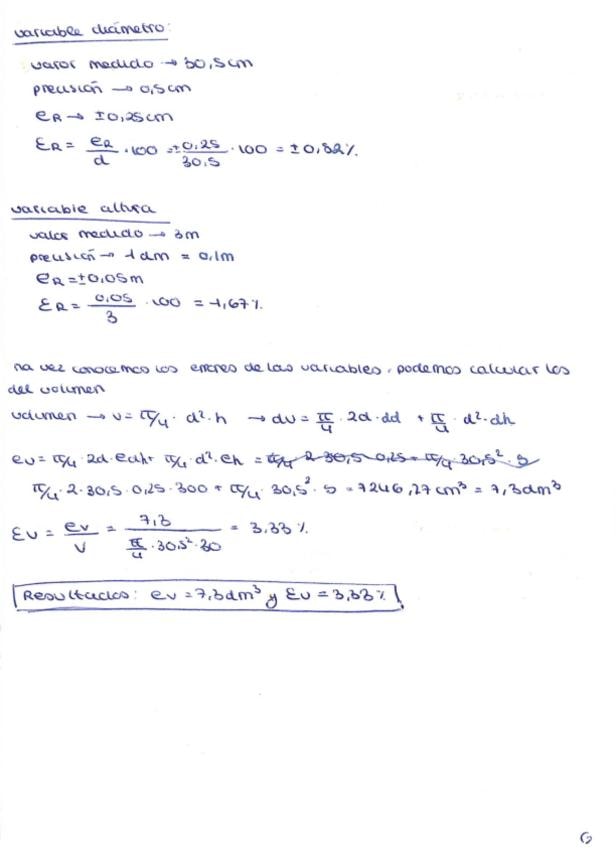 variable diámetro:
valor medido → 30,5cm
precisión → 0,5cm
eR → ±0,25cm
ƐR = eR/d · 100 = ±0,25/30,5 · 100 = ±0,82%.
variable altura
valor medido → 3m
precisión → 1dm = 0,1m
eR = ±0,05m
ƐR = 0,05/3 · 100 = 1,67%.
na vez conocemos los errores de las variables, podemos calcular los
del volumen
volumen → v = π/4 · d² · h → dv = π/4 · 2d · dd + π/4 · d² · dh
ev = π/4 · 2d · ed·h + π/4 · d² · eh = π/4 · 2 · 30,5 · 0,25 + π/4 · 30,5² · 5
π/4 · 2 · 30,5 · 0,25 · 300 + π/4 · 30,5² · 5 = 7246,27cm³ = 7,3dm³
Ɛv = ev/v = 7,3/(π/4 · 30,5² · 30) = 3,33%
Resultados: ev = 7,3dm³ y Ɛv = 3,33%
6